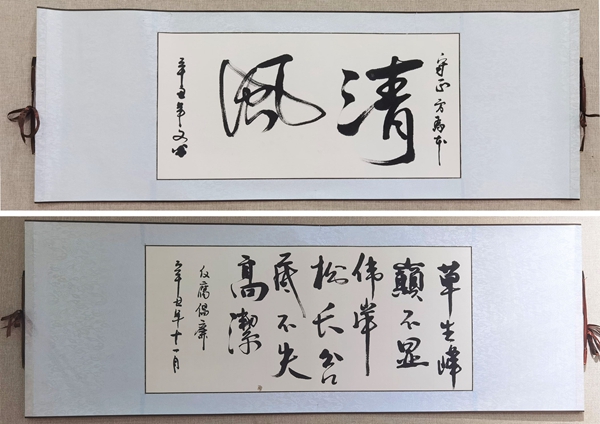 守正方为本
清
風
辛丑年文
草生峰
巅不显
伟岸
松长谷
底不失
高潔
反腐倡廉
辛丑年十一月